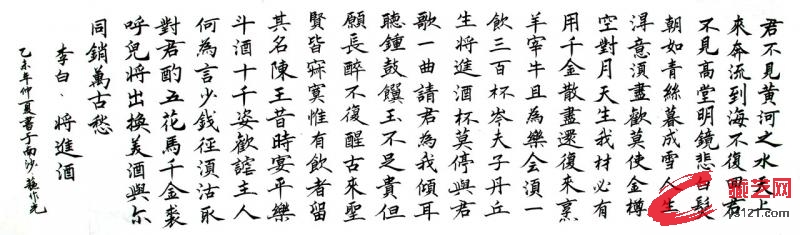 君不見黃河之水天上
來奔流到海不復回君
不見高堂明鏡悲白髮
朝如青絲暮成雪人生
得意須盡歡莫使金樽
空對月天生我材必有
用千金散盡還復來烹
羊宰牛且為樂会須一
飲三百杯岑夫子丹丘
生将進酒杯莫停與君
歌一曲請君為我傾耳
聽鍾鼓饌玉不足貴但
願長醉不復醒古來聖
賢皆寂寞惟有飲者留
其名陳王昔時宴平樂
斗酒十千恣歡謔主人
何為言少銭徑須沽取
對君酌五花馬千金裘
呼兒将出換美酒與尔
同銷萬古愁
李白、将進酒
乙未年仲夏書于南沙